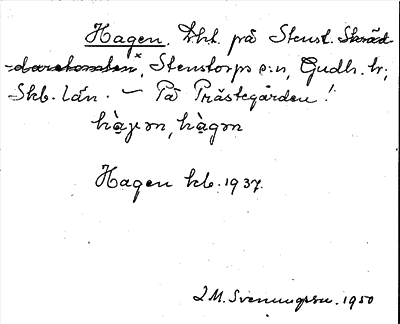 Hagen. Tht. på Stenst. Skräd-
daretomten x, Stenstorps s:n, Gudh. hr;
Skb. län. — På Prästegården!
hàɣən, hàgən
Hagen kb. 1937.
I M. Svenungsson. 1950